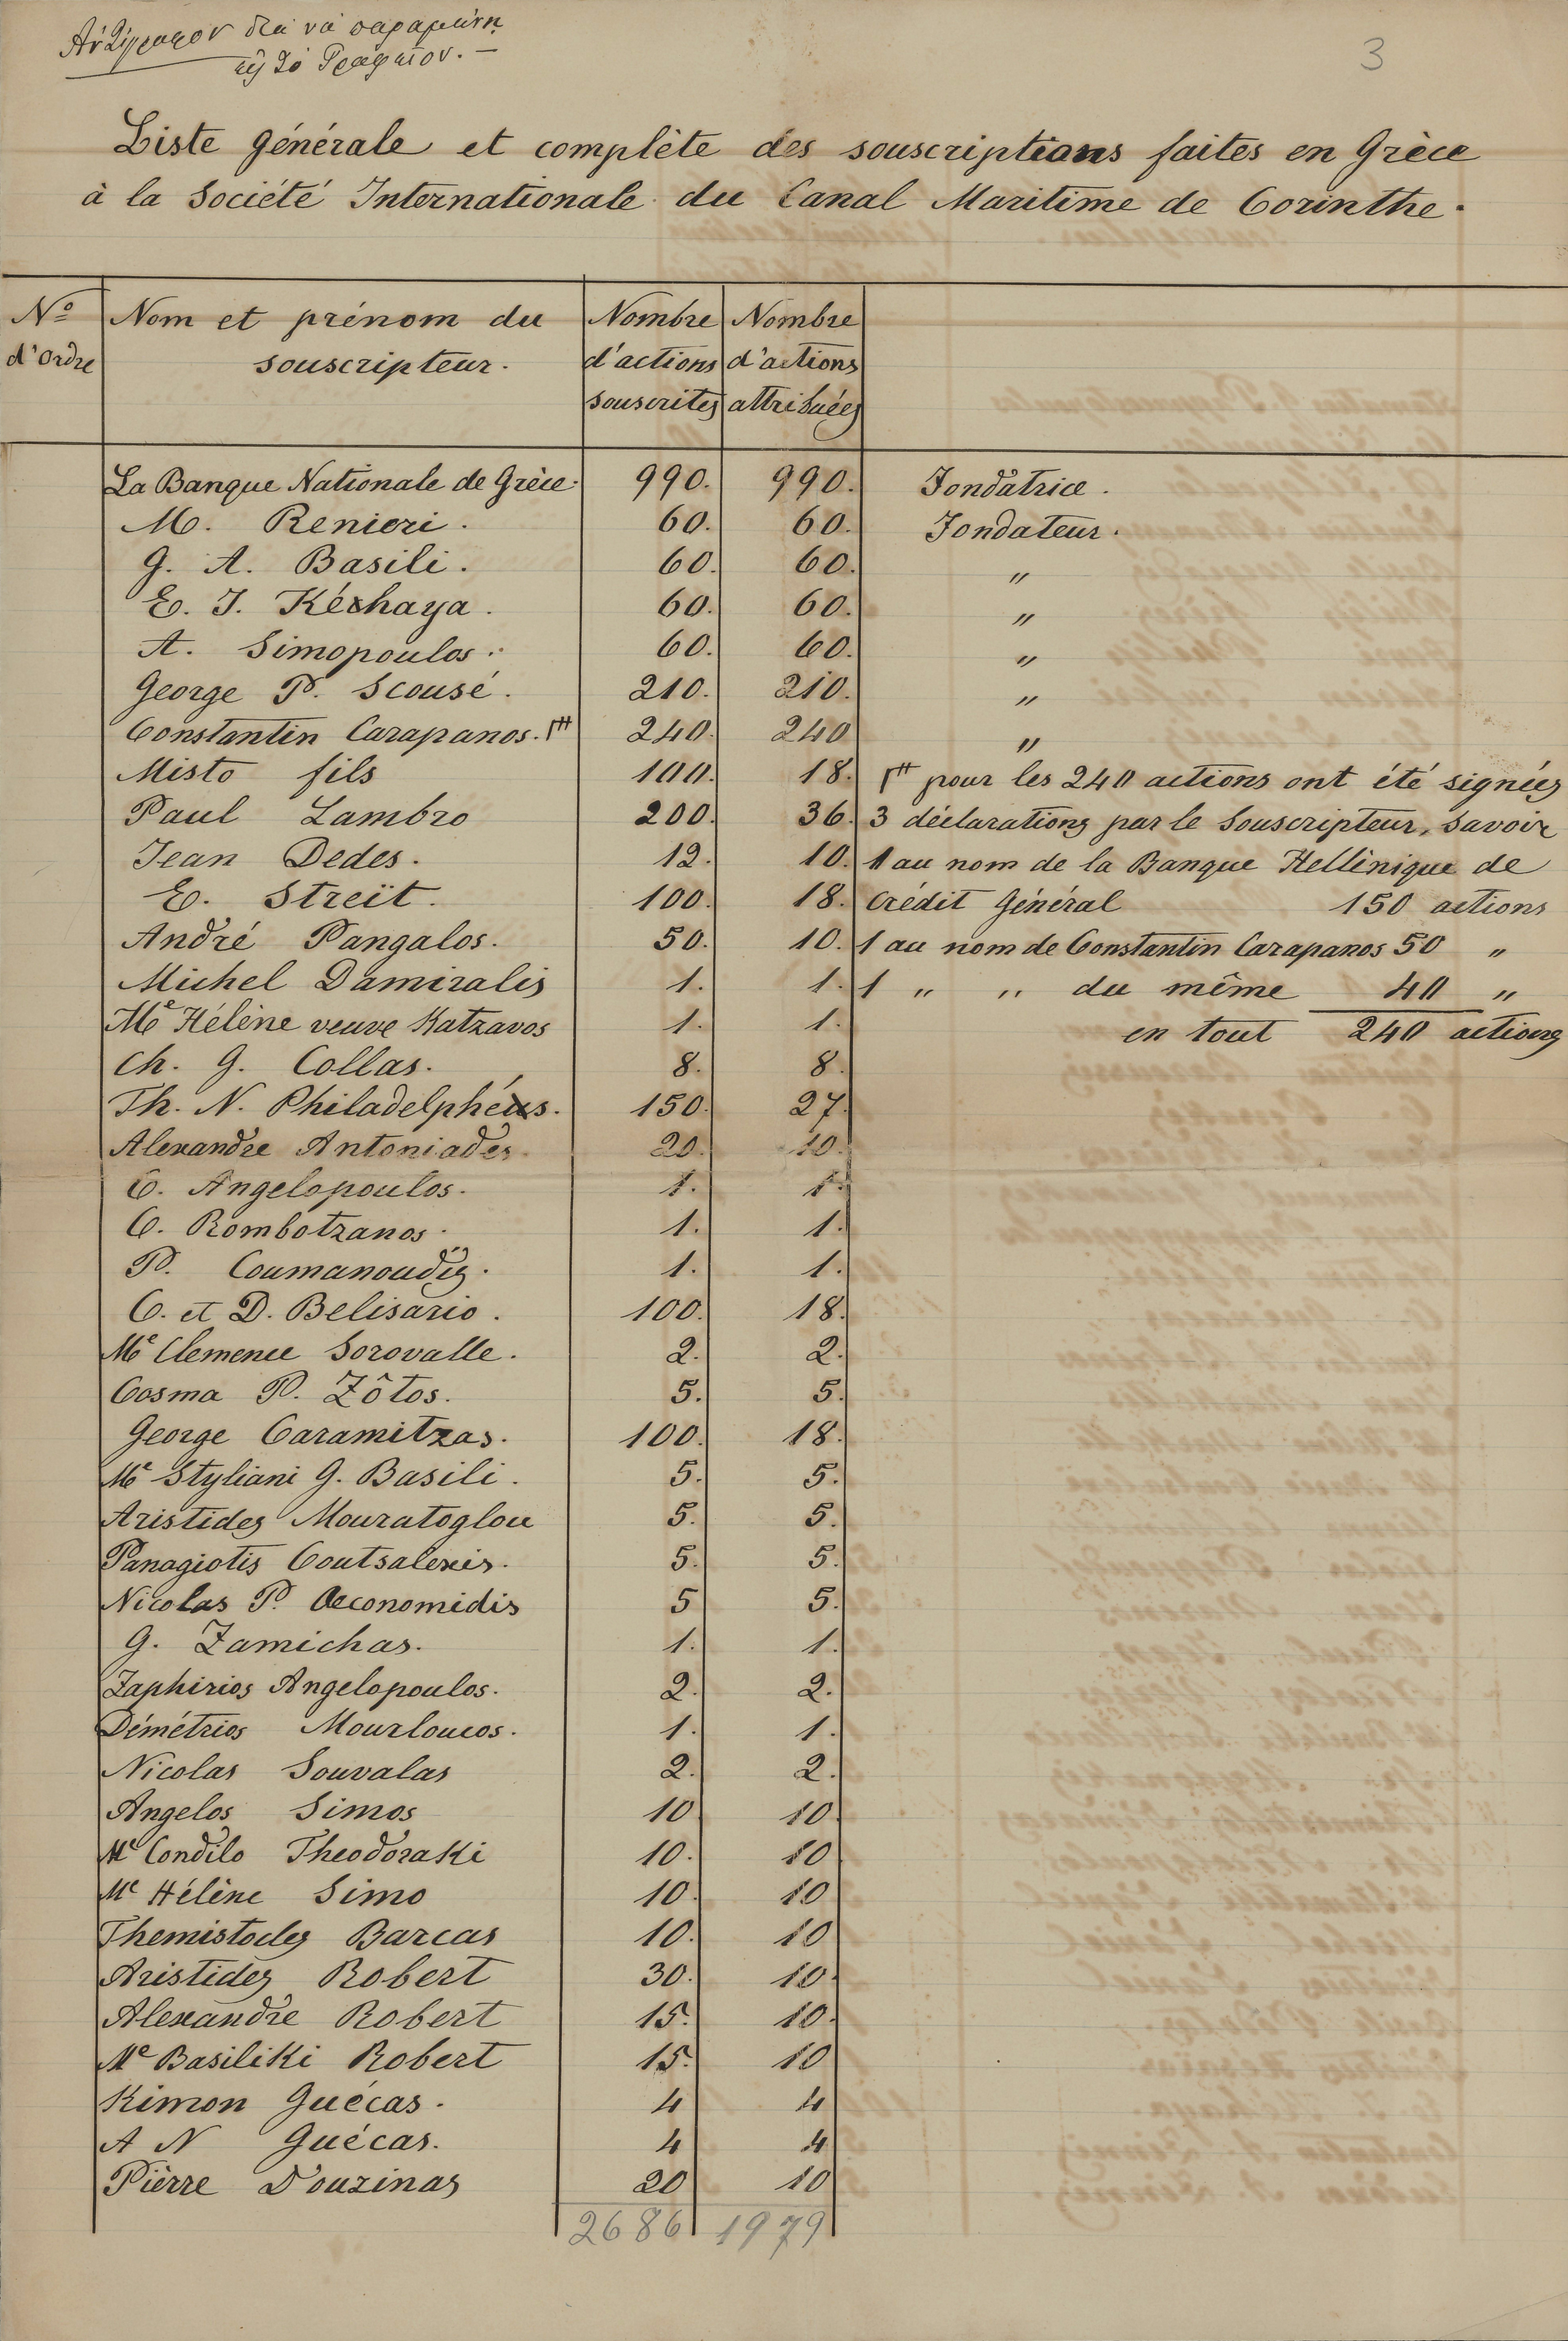 Ἀντίγραφον διὰ νὰ παραμείνῃ
εἰς τὸ Γραφεῖον. —
3
Liste générale et complète des souscriptions faites en Grèce
à la Société Internationale du Canal Maritime de Corinthe.
No d'ordre | Nom et prénom du souscripteur. | Nombre d'actions souscrites | Nombre d'actions attribuées
La Banque Nationale de Grèce. 990. 990. Fondatrice.
M. Renieri. 60. 60. Fondateur.
G. A. Basili. 60. 60. "
E. J. Kéchaya. 60. 60. "
A. Simopoulos. 60. 60. "
George P. Scousé. 210. 210. "
Constantin Carapanos. 240. 240 "
Misto fils 100. 18. pour les 240 actions ont été signées
Paul Lambro 200. 36. 3 déclarations par le Souscripteur, savoir
Jean Dedes. 12. 10. 1 au nom de la Banque Hellénique de
E. Streït. 100. 18. Crédit Général 150 actions
André Pangalos. 50. 10. 1 au nom de Constantin Carapanos 50 "
Michel Damiralis 1. 1. 1 " " du même 40 "
Me Hélène veuve Katzavos 1. 1. en tout 240 actions
Ch. G. Collas. 8. 8.
Th. N. Philadelphéus. 150. 27.
Alexandre Antoniades. 20. 10.
C. Angelopoulos. 1. 1.
C. Rombotzanos. 1. 1.
P. Coumanoudis. 1. 1.
C. et D. Belisario. 100. 18.
Me Clemence Sorovalle. 2. 2.
Cosma P. Zôtos. 5. 5.
George Caramitzas. 100. 18.
Me Styliani G. Basili. 5. 5.
Aristides Mouratoglou 5. 5.
Panagiotis Coutsalexis. 5. 5.
Nicolas P. Oeconomidis 5 5.
G. Zamichas. 1. 1.
Zaphirios Angelopoulos. 2. 2.
Démétrios Mourloucos. 1. 1.
Nicolas Souvalas 2. 2.
Angelos Simos 10 10.
Me Condilo Theodoraki 10. 10
Me Hélène Simo 10. 10
Themistocles Barcas 10. 10
Aristides Robert 30. 10.
Alexandre Robert 15. 10.
Me Basiliki Robert 15. 10
Kimon Guécas. 4 4
A N Guécas. 4 4
Pièrre Douzinas 20 10
2686 1979